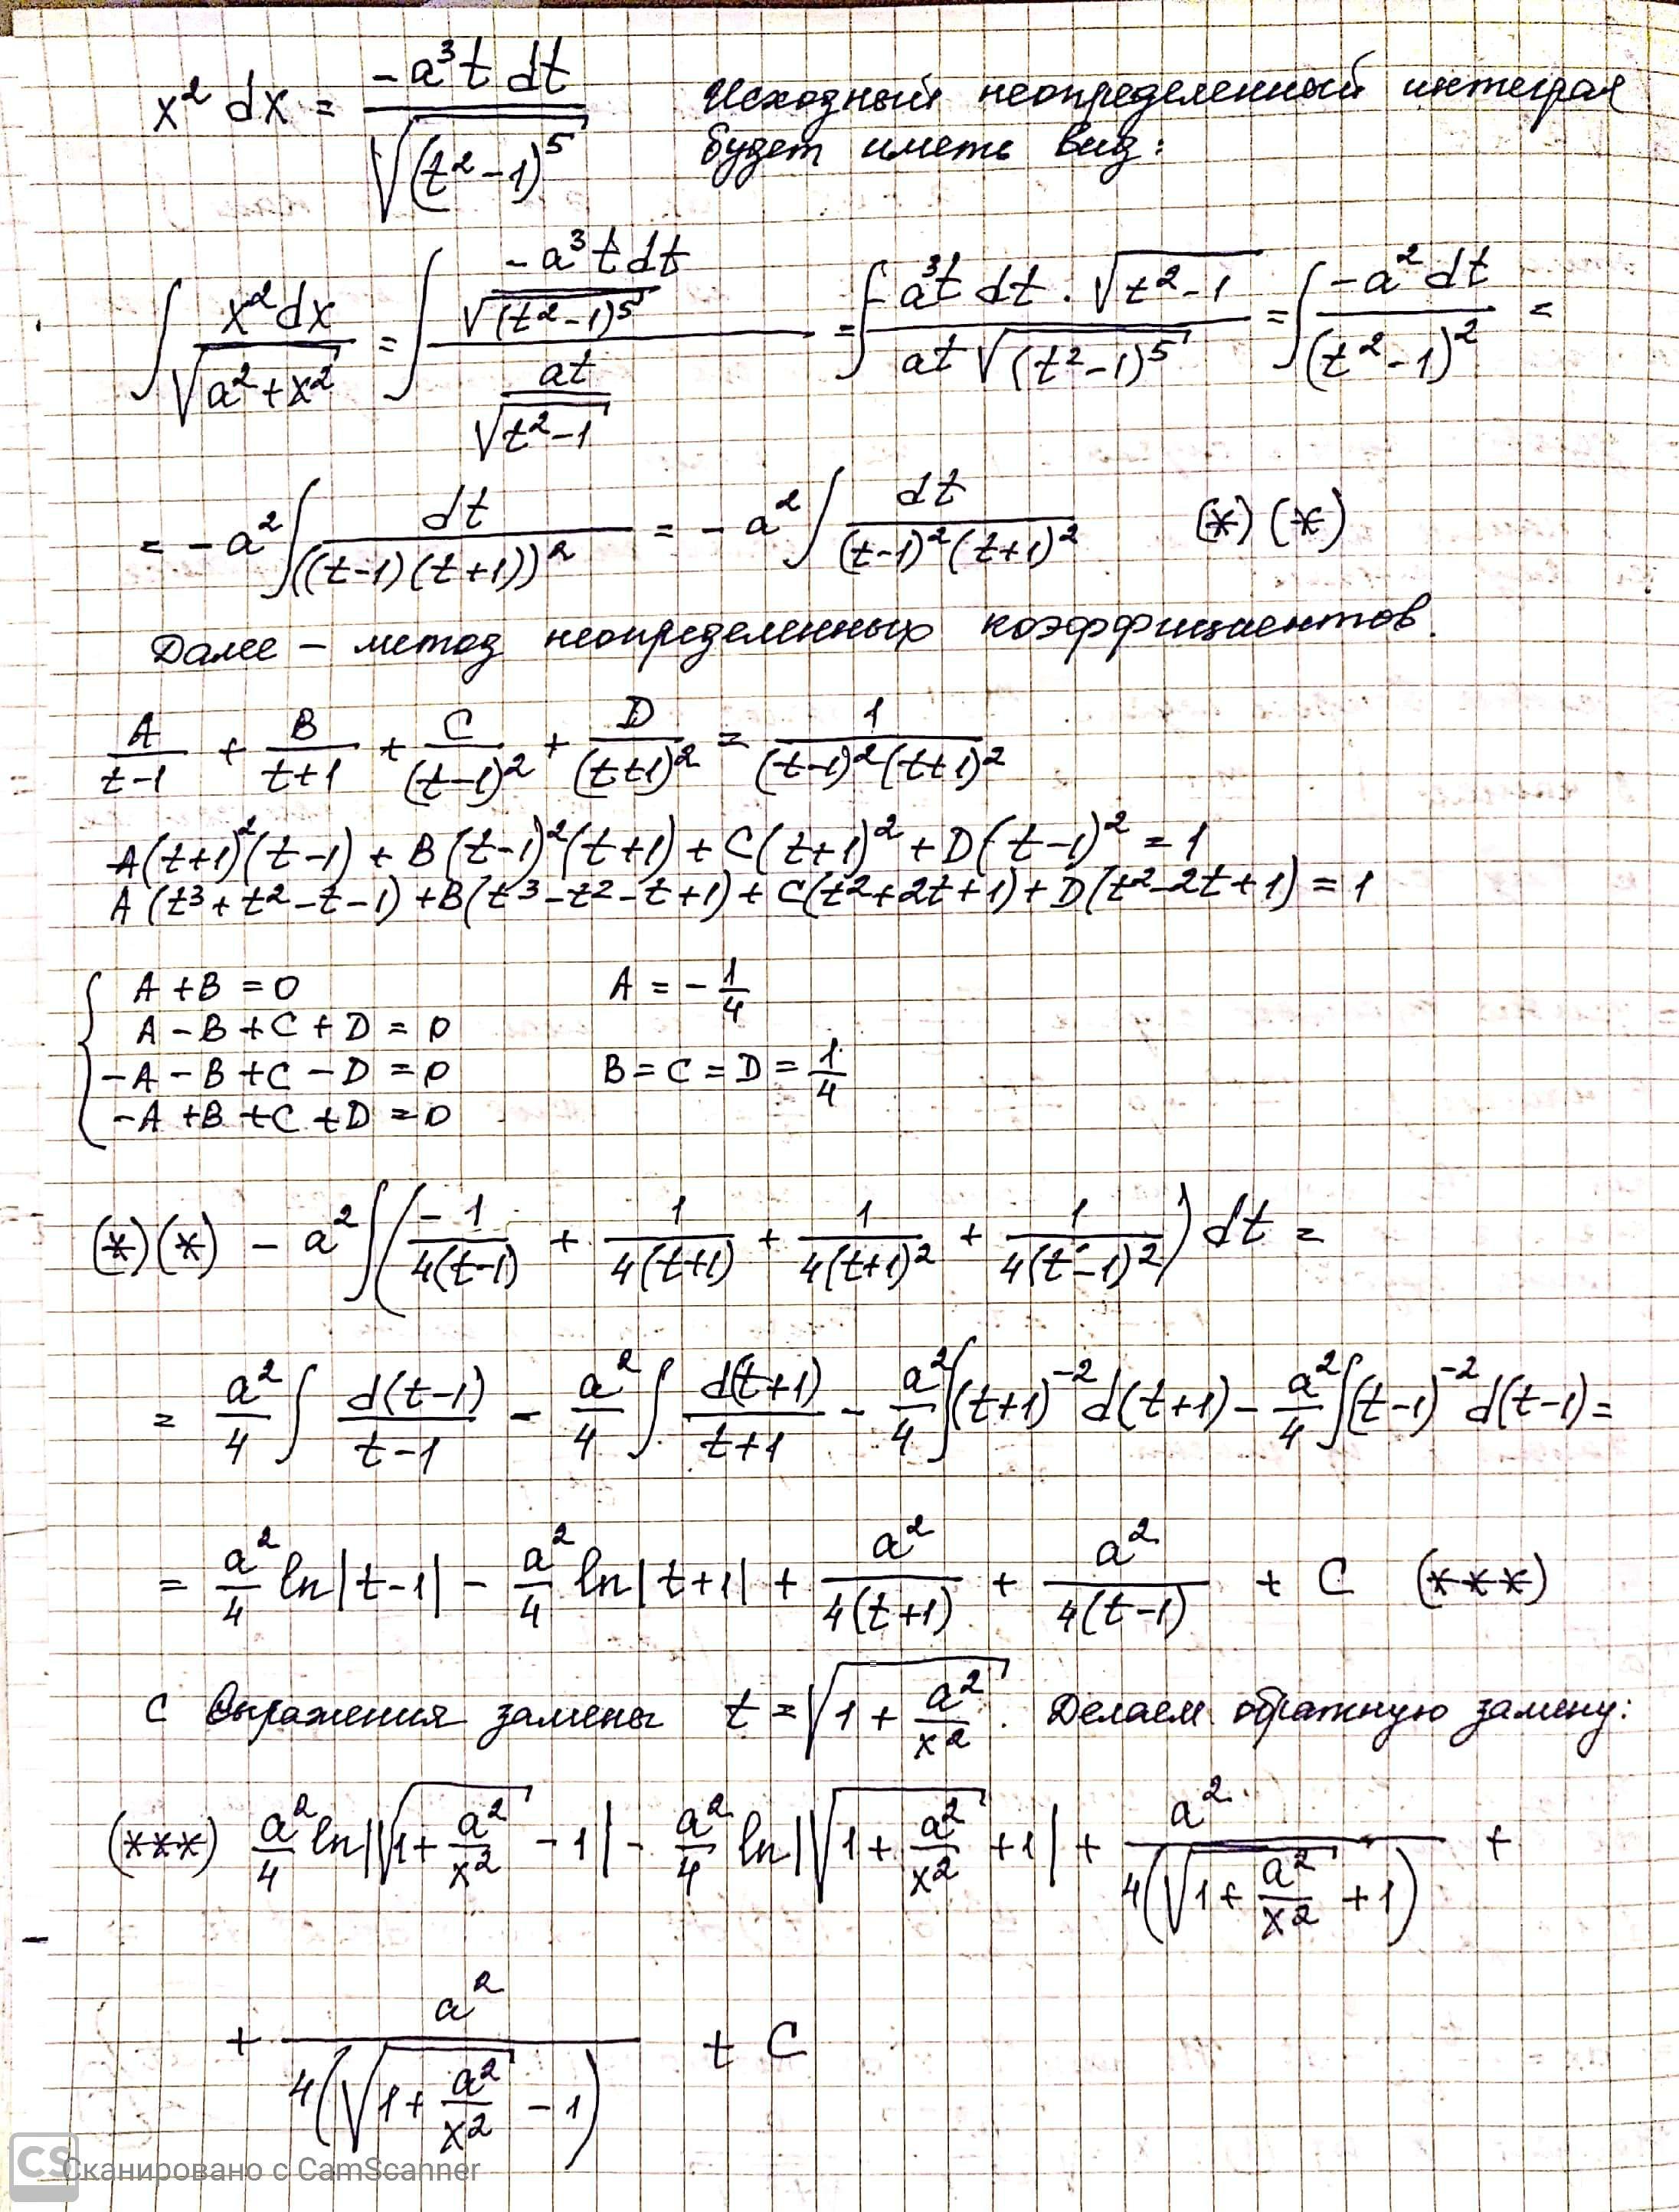 x² dx = -a³t dt / √(t²-1)⁵ Исходный неопределенный интеграл
будет иметь вид:
∫ x²dx / √(a²+x²) = ∫ (-a³t dt / √(t²-1)⁵) / (at / √(t²-1)) = ∫ -a³t dt · √(t²-1) / (at √(t²-1)⁵) = ∫ -a² dt / (t²-1)² =
= -a² ∫ dt / ((t-1)(t+1))² = -a² ∫ dt / ((t-1)²(t+1)²) (*)(*)
Далее – метод неопределенных коэффициентов.
A/(t-1) + B/(t+1) + C/(t-1)² + D/(t+1)² = 1/((t-1)²(t+1)²)
A(t+1)²(t-1) + B(t-1)²(t+1) + C(t+1)² + D(t-1)² = 1
A(t³+t²-t-1) + B(t³-t²-t+1) + C(t²+2t+1) + D(t²-2t+1) = 1
A + B = 0 A = -1/4
A - B + C + D = 0
-A - B + C - D = 0 B = C = D = 1/4
-A + B + C + D = 0
(*)(*) -a² ∫( -1/(4(t-1)) + 1/(4(t+1)) + 1/(4(t+1)²) + 1/(4(t-1)²) ) dt =
= a²/4 ∫ d(t-1)/(t-1) - a²/4 ∫ d(t+1)/(t+1) - a²/4 ∫(t+1)⁻² d(t+1) - a²/4 ∫(t-1)⁻² d(t-1) =
= a²/4 ln|t-1| - a²/4 ln|t+1| + a²/(4(t+1)) + a²/(4(t-1)) + C (***)
С выражения замены t = √(1 + a²/x²). Делаем обратную замену:
(***) a²/4 ln|√(1 + a²/x²) - 1| - a²/4 ln|√(1 + a²/x²) + 1| + a²/(4(√(1 + a²/x²) + 1)) +
+ a²/(4(√(1 + a²/x²) - 1)) + C
CS Сканировано с CamScanner